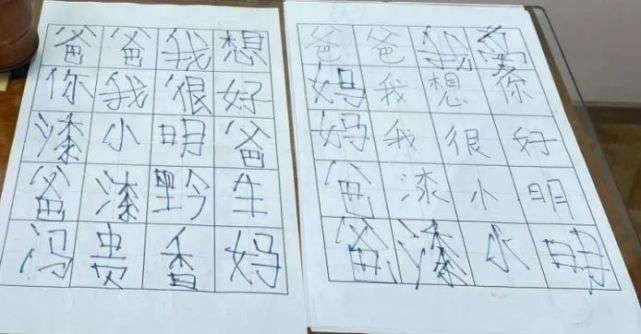 爸爸我想
你我很好
漆小明爸
爸漆黔生
冯贵香妈
爸爸我
妈我想你
妈我很好
爸漆小明
爸漆小明